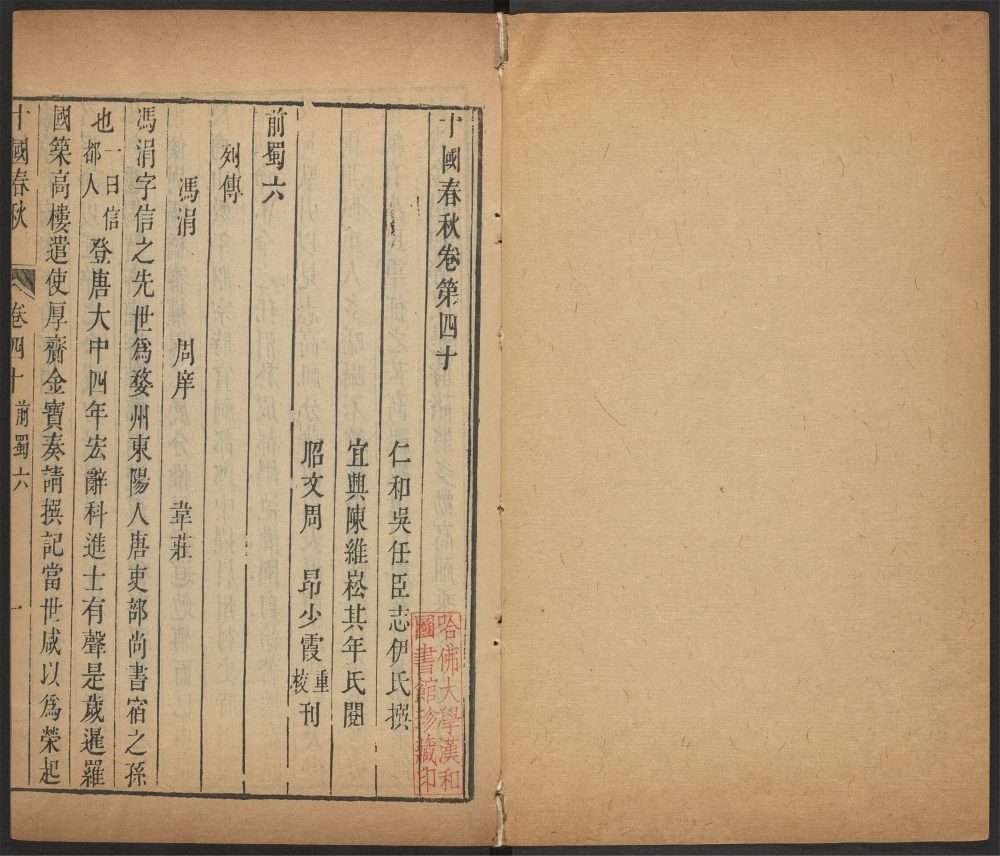 十國春秋卷第四十
仁和吳任臣志伊氏撰
宜興陳維崧其年氏閱
昭文周昂少霞重校刊
前蜀六
列傳
馮涓 周庠 韋莊
馮涓字信之先世為婺州東陽人唐吏部尚書宿之孫
也一日信都人登唐大中四年宏辭科進士有聲是歲暹羅
國築高樓遣使厚齎金寶奏請撰記當世咸以爲榮起
十國春秋 卷四十 前蜀六 一
哈佛大學漢和
圖書館珍藏印